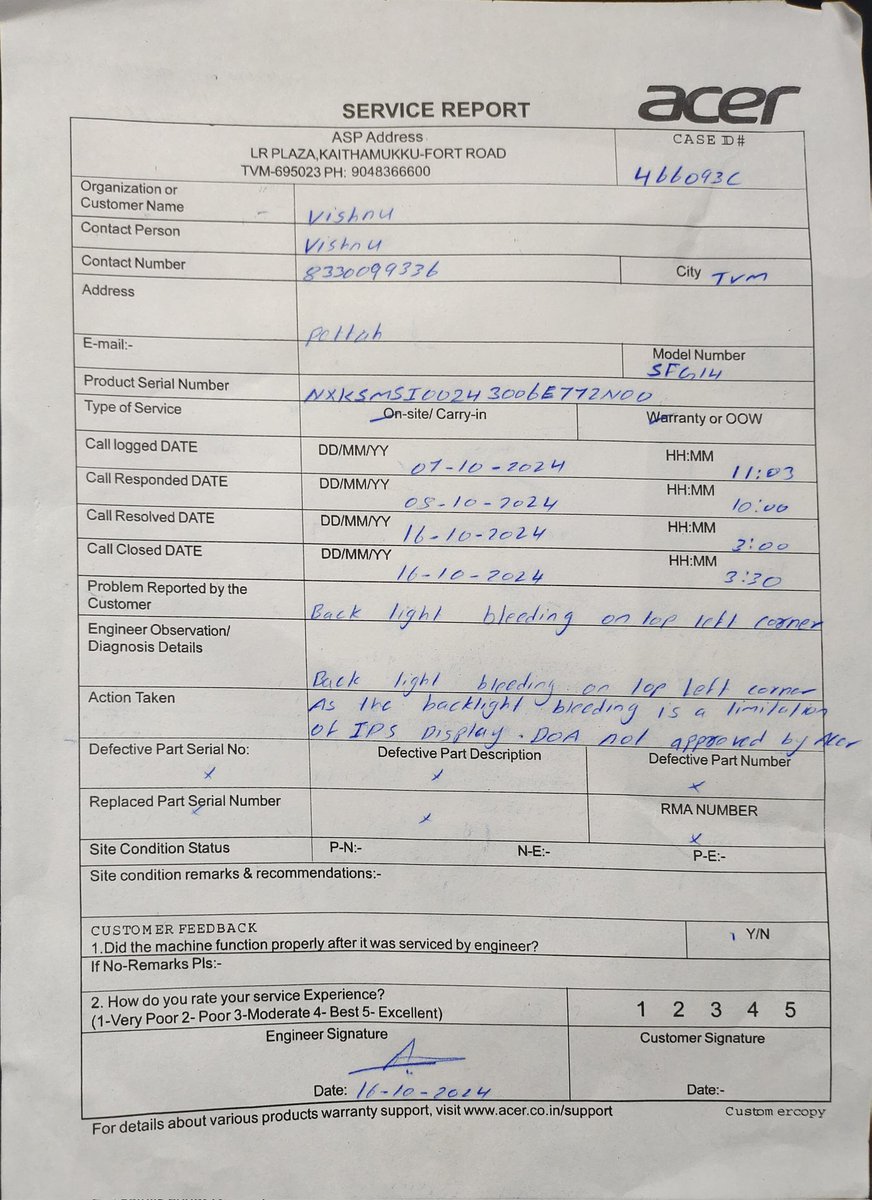 SERVICE REPORT
acer
ASP Address
LR PLAZA,KAITHAMUKKU-FORT ROAD
TVM-695023 PH: 9048366600
CASE ID#
466093C
Organization or
Customer Name
Vishnu
Contact Person
Vishnu
Contact Number
8330099336
City TVM
Address
Pettah
E-mail:-
Model Number
SFG14
Product Serial Number
NXKSMSI00243006E772N00
Type of Service
On-site/ Carry-in
Warranty or OOW
Call logged DATE
DD/MM/YY
07-10-2024
HH:MM
11:03
Call Responded DATE
DD/MM/YY
08-10-2024
HH:MM
10:00
Call Resolved DATE
DD/MM/YY
16-10-2024
HH:MM
3:00
Call Closed DATE
DD/MM/YY
16-10-2024
HH:MM
3:30
Problem Reported by the
Customer
Back light bleeding on top left corner
Engineer Observation/
Diagnosis Details
Back light bleeding on top left corner
Action Taken
As the backlight bleeding is a limitation
of IPS Display. DOA not approved by Acer
Defective Part Serial No:
x
Defective Part Description
x
Defective Part Number
x
Replaced Part Serial Number
x
x
RMA NUMBER
x
Site Condition Status
P-N:-
N-E:-
P-E:-
Site condition remarks & recommendations:-
CUSTOMER FEEDBACK
1.Did the machine function properly after it was serviced by engineer?
Y/N
If No-Remarks Pls:-
2. How do you rate your service Experience?
(1-Very Poor 2- Poor 3-Moderate 4- Best 5- Excellent)
1 2 3 4 5
Engineer Signature
Date: 16-10-2024
Customer Signature
Date:-
For details about various products warranty support, visit www.acer.co.in/support
Customercopy